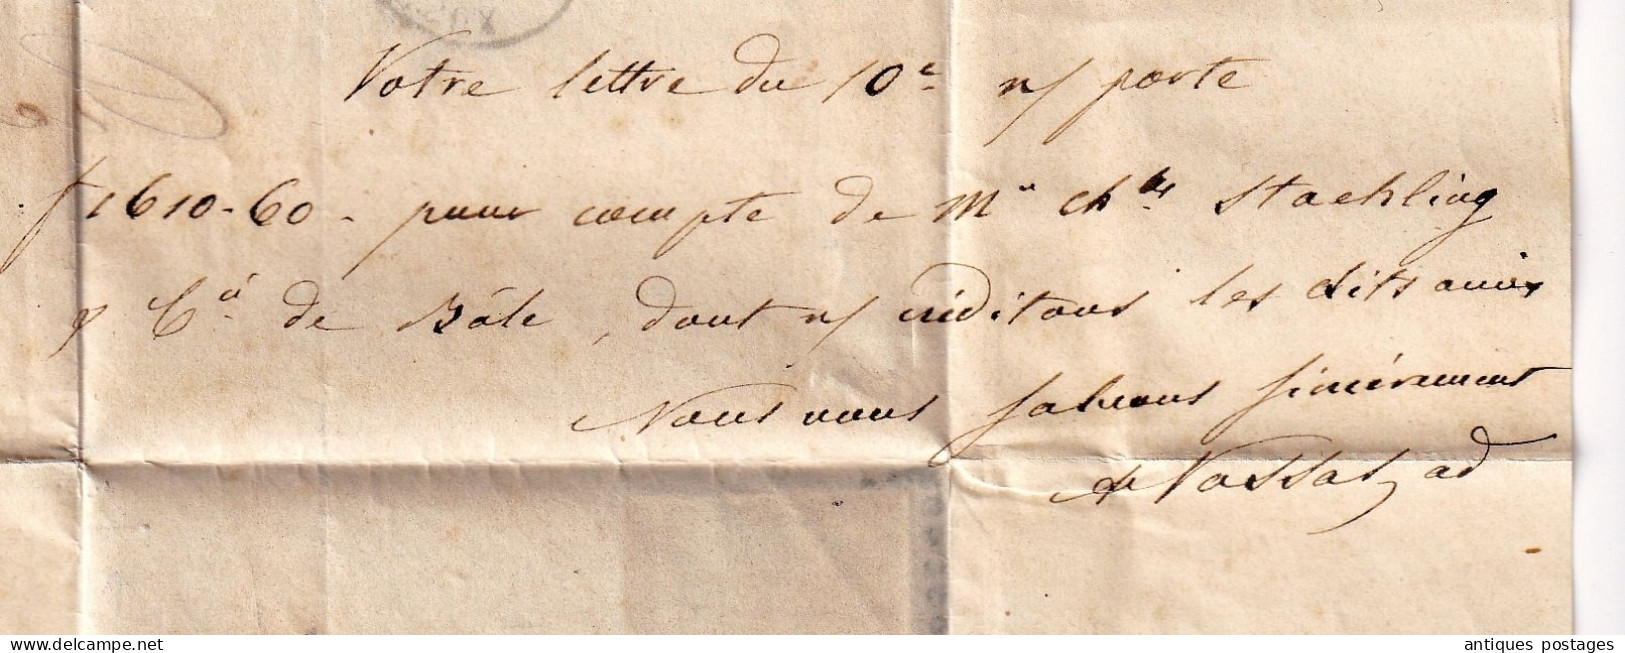 Votre lettre du 10c n/ porte
f 1610-60 - pour compte de Mrs Chles Staehling
& Cie de Bâle, dont n/ créditons les dits amis
Nous vous saluons sincèrement
antiques postages